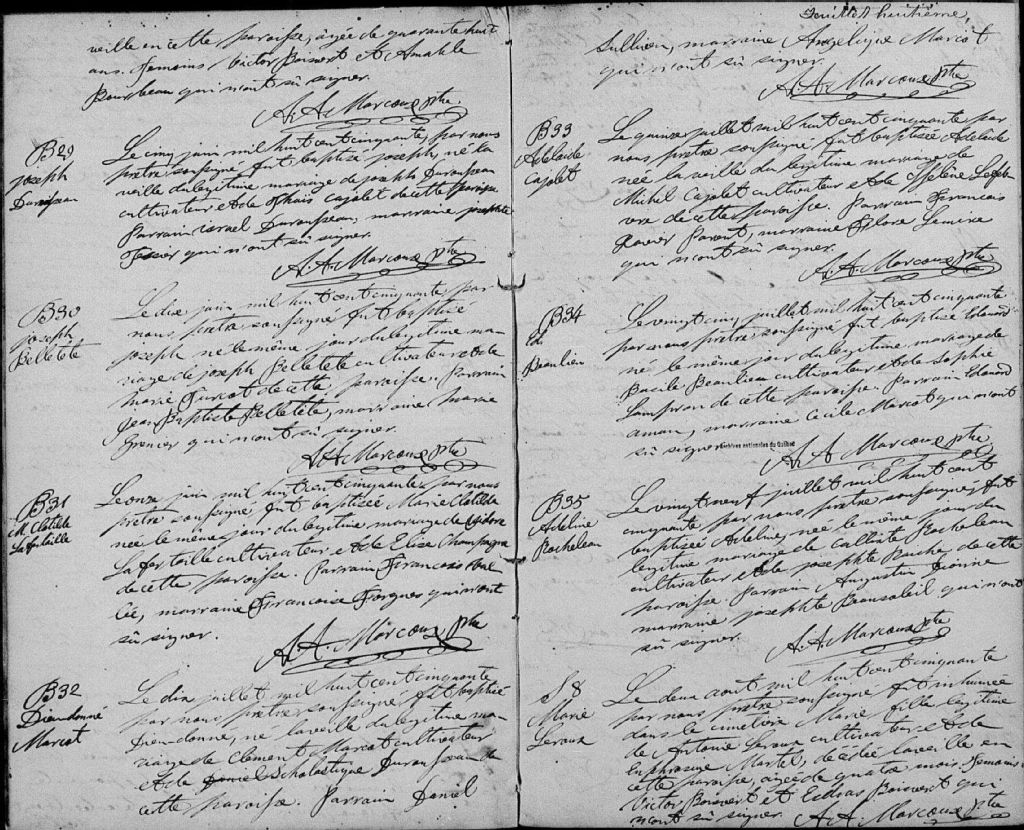 veille en cette paroisse, âgée de quarante huit
ans. Temoins Victor Boisvert et Amable
Bourbeau qui n'ont sû signer.
A. A. Marcoux Ptre
B29
Joseph
Durospeau
Le cinq juin mil huit cent cinquante, par nous
prêtre soussigné, fut baptisé joseph, né la
veille du légitime mariage de joseph Durospeau
cultivateur et de Thaïs Cajolet de cette paroisse
Parrain israel Durospeau, marraine josephte
Tessier qui n'ont sû signer.
A. A. Marcoux Ptre
B30
joseph
Belletete
Le dix juin mil huit cent cinquante, par
nous prêtre soussigné fut baptisé
joseph né le même jour du légitime ma-
riage de joseph Belletete cultivateur et de
Marie Turcot de cette paroisse. Parrain
Jean Baptiste Belletete, marraine Marie
Grenier qui n'ont sû signer.
A. A. Marcoux Ptre
B31
M. Clotilde
Lafertaille
Le onze juin mil huit cent cinquante par nous
prêtre soussigné, fut baptisée Marie Clotilde
née le même jour du légitime mariage de isidore
Lafertaille cultivateur et de Elise Champagne
de cette paroisse. Parrain François
marraine Françoise Forgues qui n'ont
sû signer.
A. A. Marcoux Ptre
B32
Dieudonné
Marcot
Le dix juillet mil huit cent cinquante
par nous prêtre soussigné, fut baptisé
Dieudonné, né la veille du légitime ma-
riage de Clement Marcot cultivateur
et de Daniel Scholastique Durospeau de
cette paroisse. Parrain Daniel
Feuillet huitième,
Sullivan, marraine Angelique Marcot
qui n'ont sû signer.
A. A. Marcoux Ptre
B33
Adelaide
Cajolet
Le quinze juillet mil huit cent cinquante par
nous prêtre soussigné, fut baptisée Adelaide
née la veille du légitime mariage de
Michel Cajolet cultivateur et de Hélène Lefeb-
vre de cette paroisse. Parrain François
Xavier Parent, marraine Flore Lemire
qui n'ont sû signer.
A. A. Marcoux Ptre
B34
Ed.
Beaulieu
Le vingt cinq juillet mil huit cent cinquante
par nous prêtre soussigné fut baptisé Edouard
né le même jour du légitime mariage de
Basile Beaulieu cultivateur et de Sophie
Lampron de cette paroisse. Parrain Edouard
marraine Cecile Marcot qui n'ont
sû signer. Archives nationales du Québec
A. A. Marcoux Ptre
B35
Adeline
Rocheleau
Le vingt neuf juillet mil huit cent
cinquante par nous prêtre soussigné, fut
baptisée Adeline, née le même jour du
légitime mariage de Calixte Rocheleau
cultivateur et de josephte Roche de cette
paroisse. Parrain Augustin Dionne
marraine josephte Beausoleil qui n'ont
sû signer.
A. A. Marcoux Ptre
S8
Marie
Leroux
Le deux aout mil huit cent cinquante
par nous prêtre soussigné fut inhumée
dans le cimetière Marie, fille légitime
de Antoine Leroux cultivateur et de
Euphrasine Martel, décédée la veille en
cette paroisse, âgée de quatre mois. Temoins
Victor Boisvert et Esdras Boisvert qui
n'ont sû signer. A. A. Marcoux Ptre